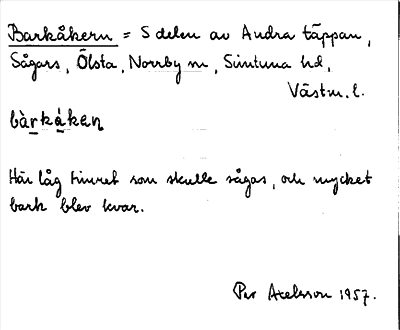 Barkåkern = S delen av Andra täppan,
Sågars, Ölsta, Norrby sn, Simtuna hd,
Västm. l.
bàrkåkeɳ
Här låg timret som skulle sågas, och mycket
bark blev kvar.
Per Axelsson 1957.